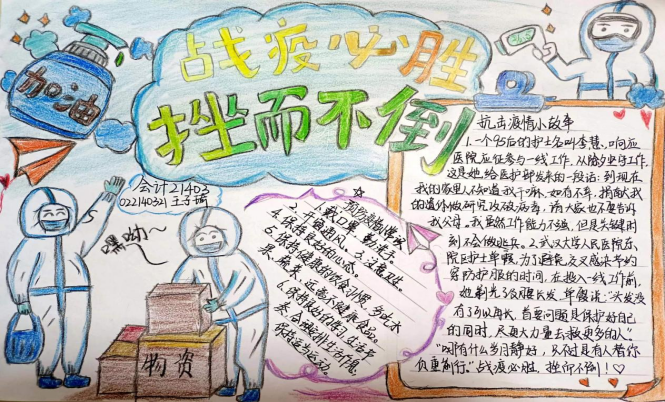 战疫必胜
挫而不倒
加油
会计21403
022140321 王子
嘿呦~
物资
1.戴口罩,勤洗手
2.开窗通风。3.注意卫生。
4.保持良好的心态。
5.保持健康的饮食习惯,多吃水
果、蔬菜,远离不健康食品。
保持适当运动。
抗击疫情小故事
1.一个95后的护士名叫李慧、响应
医院应征参与一线工作,从除夕坚守工作,
这是她给医护部发来的一段话:到现在
我的家里人不知道我干嘛,如有不幸,捐献我
的遗体做研究攻破病毒,请大家也不要告诉
我父母。我虽然工作能力不强,但是关键时
刻不会做逃兵。2.武汉大学人民医院东
院区护士单霞,为了避免交叉感染、节约
穿防护服的时间,在投入一线工作前,
她剃光了及腰长发,单霞说:"头发没
有了可以再长,首要问题是保护好自己
的同时,尽更大力量去救更多的人"。
"哪有什么岁月静好,只不过是有人替你
负重前行。"战疫必胜,挫而不倒!